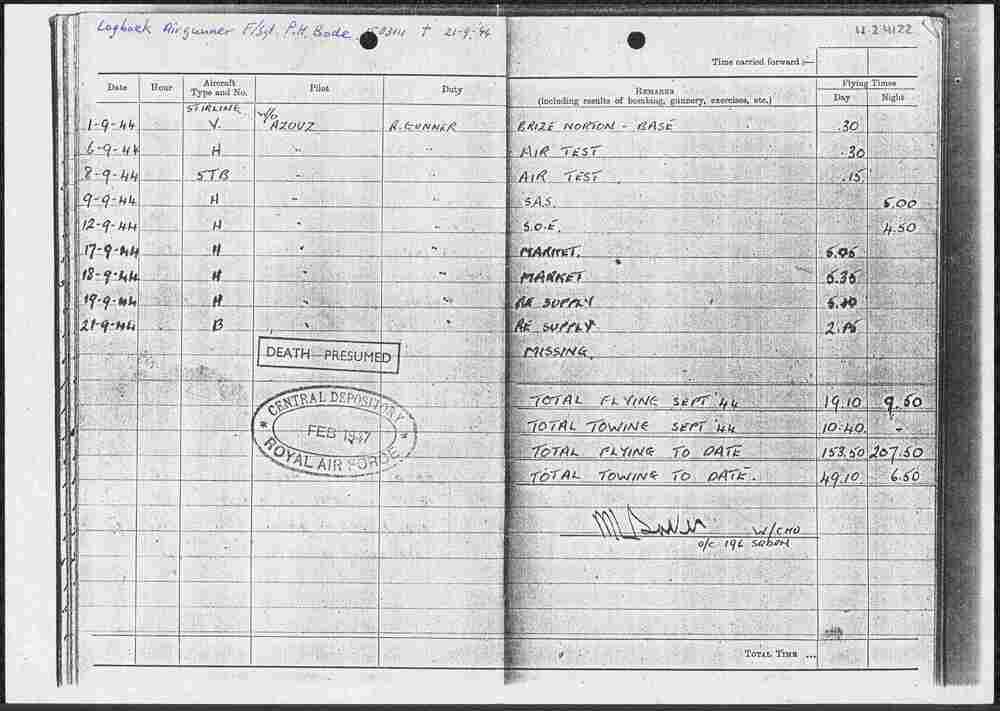 Logbook Airgunner F/Sgt. P.H. Bode † 21-9-'44
Time carried forward :—
Date Hour Aircraft Type and No. Pilot Duty REMARKS (including results of bombing, gunnery, exercises, etc.) Flying Times Day Night
STIRLING W/O
1-9-44 V. AZOUZ R. GUNNER BRIZE NORTON - BASE .30
6-9-44 H " " AIR TEST .30
8-9-44 STB " " AIR TEST .15
9-9-44 H " " S.A.S. 5.00
12-9-44 H " " S.O.E. 4.50
17-9-44 H " " MARKET. 5.05
18-9-44 H " " MARKET 5.35
19-9-44 H " " RE SUPPLY
21-9-44 B " " RE SUPPLY
MISSING.
DEATH PRESUMED
CENTRAL DEPOSITORY
FEB 1947
ROYAL AIR FORCE
TOTAL FLYING SEPT '44 19.10 9.50
TOTAL TOWING SEPT '44 10.40. -
TOTAL FLYING TO DATE 153.50 207.50
TOTAL TOWING TO DATE. 49.10 6.50
W/CMD
o/c 196 SQDN
TOTAL TIME ...